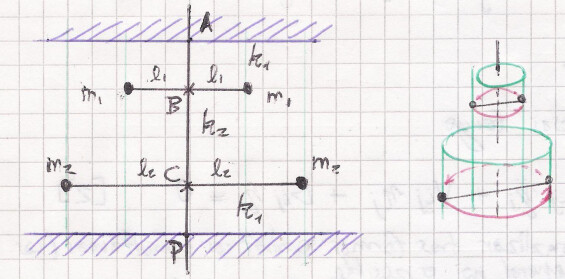 A
k₁
l₁ l₁
m₁ B m₁
k₂
m₂ l₂ C l₂ m₂
k₁
P